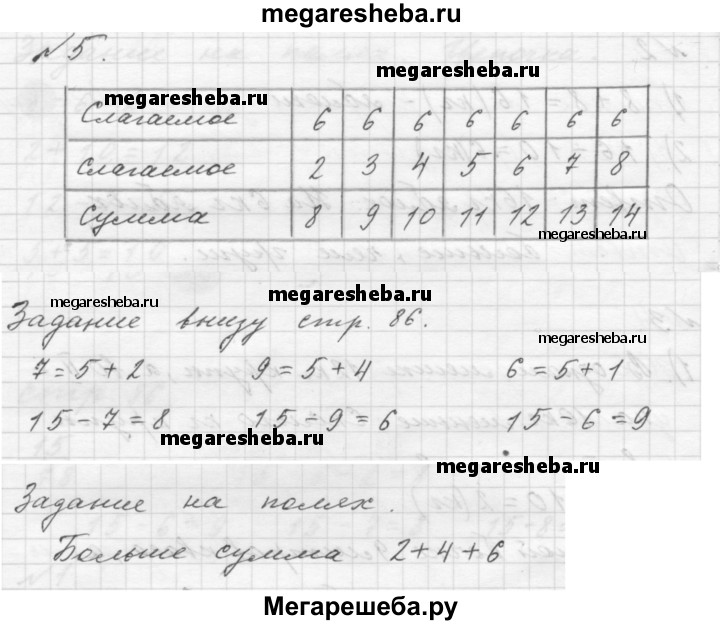 megaresheba.ru
№5.
megaresheba.ru
megaresheba.ru
Слагаемое 6 6 6 6 6 6 6
Слагаемое 2 3 4 5 6 7 8
Сумма 8 9 10 11 12 13 14
megaresheba.ru
megaresheba.ru
megaresheba.ru
Задание внизу стр. 86.
megaresheba.ru
7=5+2 9=5+4 6=5+1
15-7=8 15-9=6 15-6=9
megaresheba.ru
megaresheba.ru
Задание на полях.
Больше сумма 2+4+6
Мегарешеба.ру